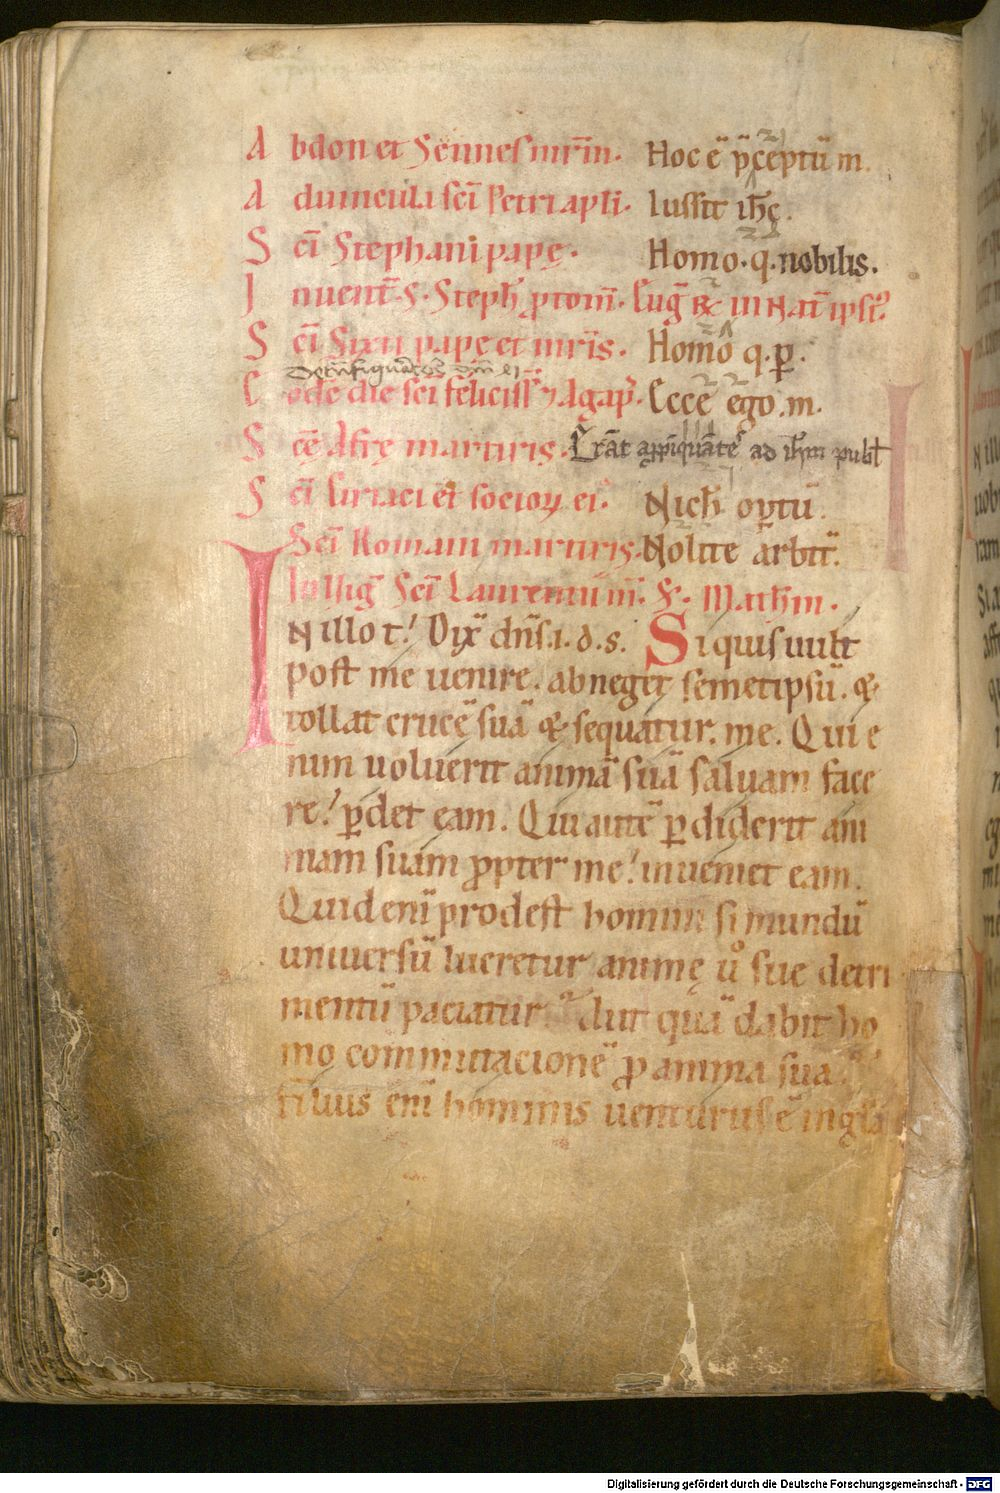 Abdon et Sennes mr̄m. Hoc ē p̄ceptū m.
Aduincula sc̄i Petri apl̄i. Iussit ih̄c.
Sc̄i Stephani papę. Homo. q. nobilis.
Inuent̄. S. Steph̄ ꝓtom̄. Eug̅ R̄x in Nat̄ ipsi᾽.
Sc̄i Sixti papę et mr̄is. Homo q. ꝑ.
Eodē die sc̄i feliciss̄ ⁊ Agap̄. Ecce ego .m.
Scę Afrę martiris. Erāt app̄iquātes ad ih̄m publ̄
Sc̄i Ciriaci et socioꝝ ei᾽. Nich̄ op̄tū.
Sc̄i Romani martiris. Nolite arbit̄.
In uig̅ Sc̄i Laurentii m̄. S. Math̄m.
In illo t̄. Dix̄ dn̄s .i. d. s. Si quis uult
post me uenire. abneget semetipsū. &
tollat crucē suā & sequatur. me. Qui e
nim uoluerit animā suā saluam face
re! ꝑdet eam. Qui autē ꝑdiderit ani
mam suam ꝓpter me! inueniet eam.
Quid enī prodest homini si mundū
uniuersū lucretur animę ů sue detri
mentū paciatur. Aut quā dabit ho
mo commutacionē ꝓ anima sua.
filius enī hominis uenturus ē in gl̄a
Digitalisierung gefördert durch die Deutsche Forschungsgemeinschaft - DFG